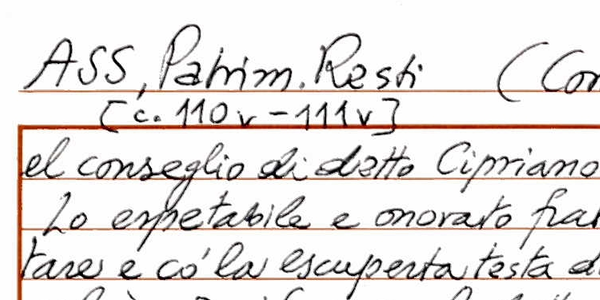 ASS, Patrim. Resti (Con
[c. 110v - 111v]
el conseglio di detto Cipriano
Lo espetabile e onorato frat
tare e co' la escuperta testa di